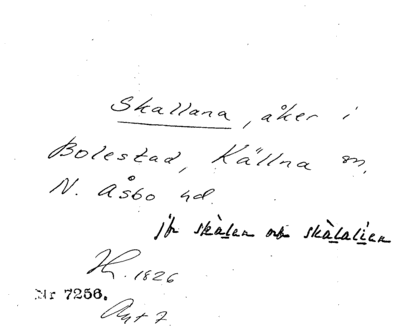 Skallana, åker i
Bolestad, Källna sn,
N. Åsbo hd.
jfr skàlen och skàlalien
1826
Nr 7256.